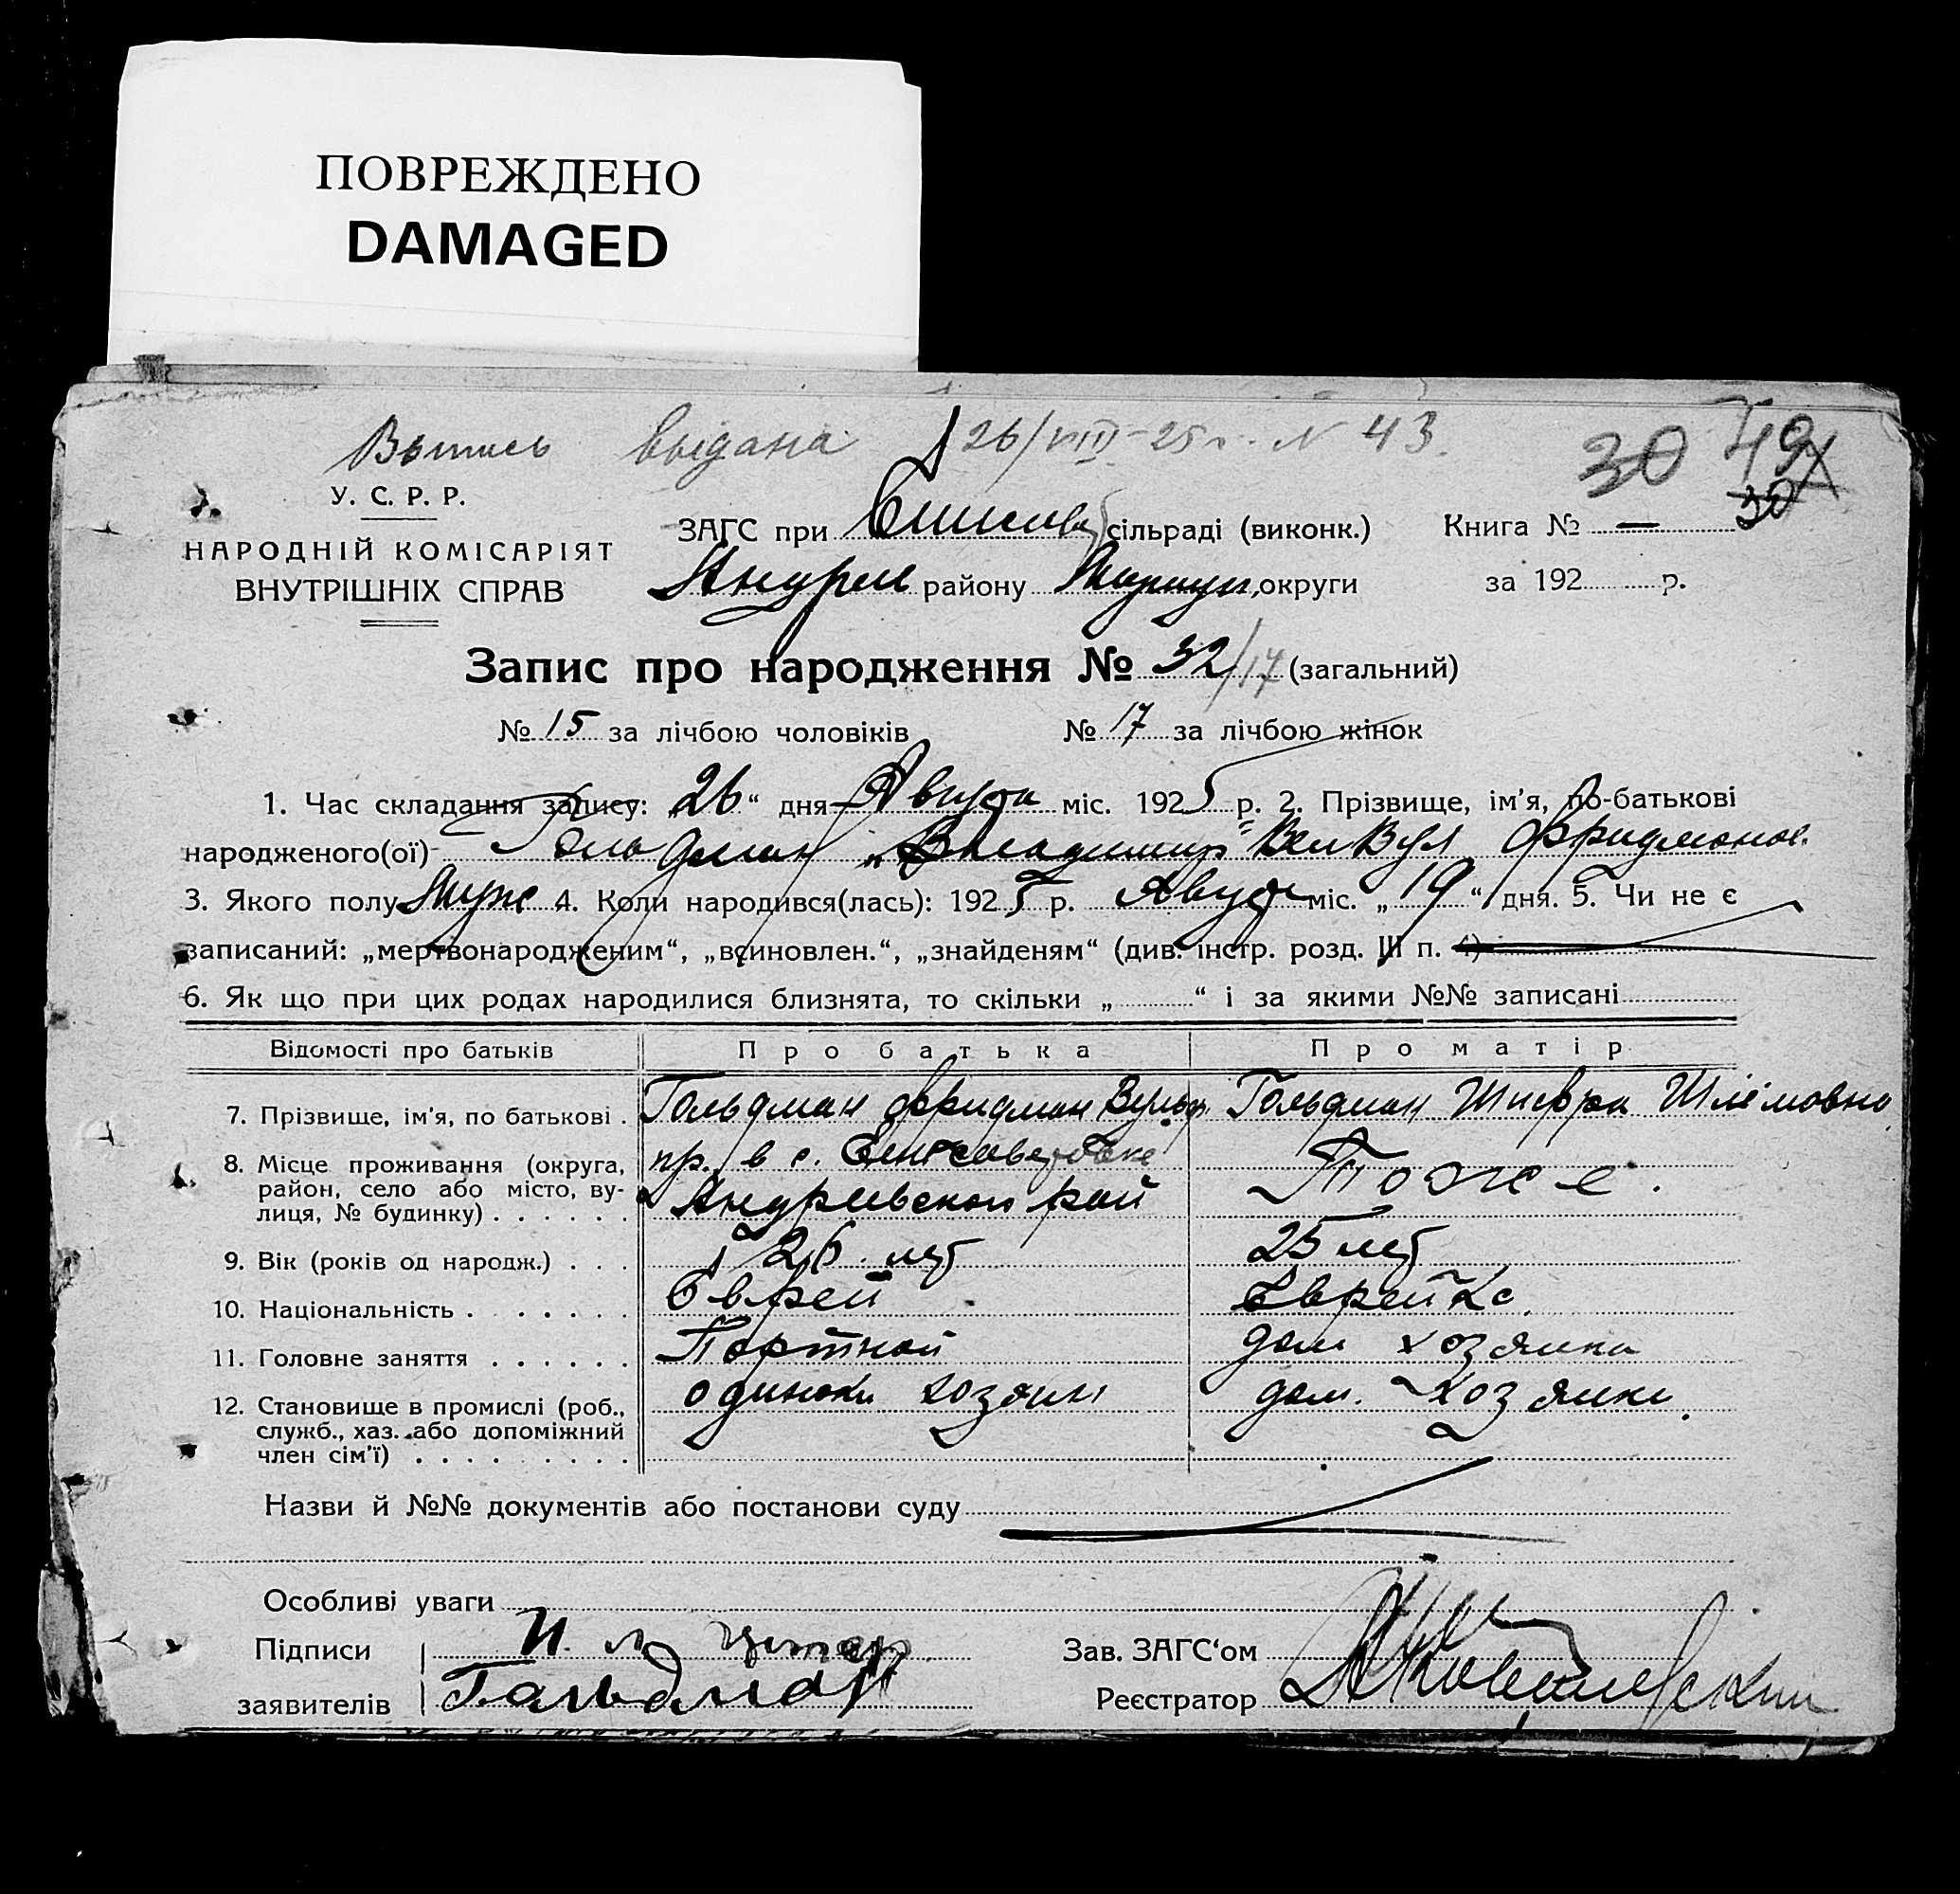 ПОВРЕЖДЕНО
DAMAGED
Выпись выдана 26/VIII-25 г. N 43.
30 49
30
У. С. Р. Р.
НАРОДНІЙ КОМІСАРІЯТ
ВНУТРІШНІХ СПРАВ
ЗАГС при сільраді (виконк.) Книга № —
Андреев району Мариуп. округи за 192 р.
Запис про народження № 32/17 (загальний)
№ 15 за лічбою чоловіків № 17 за лічбою жінок
1. Час складання запису: „26“ дня Августа міс. 1925 р. 2. Прізвище, ім'я, по-батькові
народженого(ої) Гольдман „Владимир" Вел Вул Фридманов.
3. Якого полу Муж 4. Коли народився(лась): 1925 р. Август міс. „19“ дня. 5. Чи не є
записаний: „мертвонародженим“, „всиновлен.“, „знайденям“ (див. інстр. розд. III п. 4)
6. Як що при цих родах народилися близнята, то скільки „ “ і за якими №№ записані
Відомості про батьків Про батька Про матір
7. Прізвище, ім'я, по батькові . Гольдман Фридман Вульф Гольдман Шифра Шлёмовна
8. Місце проживання (округа, пр. в с. Елисаветовке Тоже.
район, село або місто, ву- Андреевской рай
лиця, № будинку) . . . . . .
9. Вік (років од народж.) . . . 26 лет 25 лет
10. Національність . . . . . . . Еврей Еврейка.
11. Головне заняття . . . . . . Портной дом хозяйка
12. Становище в промислі (роб., одиноки хозяин дом. хозяйка.
служб., хаз. або допоміжний
член сім'ї) . . . . . . . . .
Назви й №№ документів або постанови суду
Особливі уваги
Підписи Зав. ЗАГС‘ом
заявителів Гольдман Реєстратор